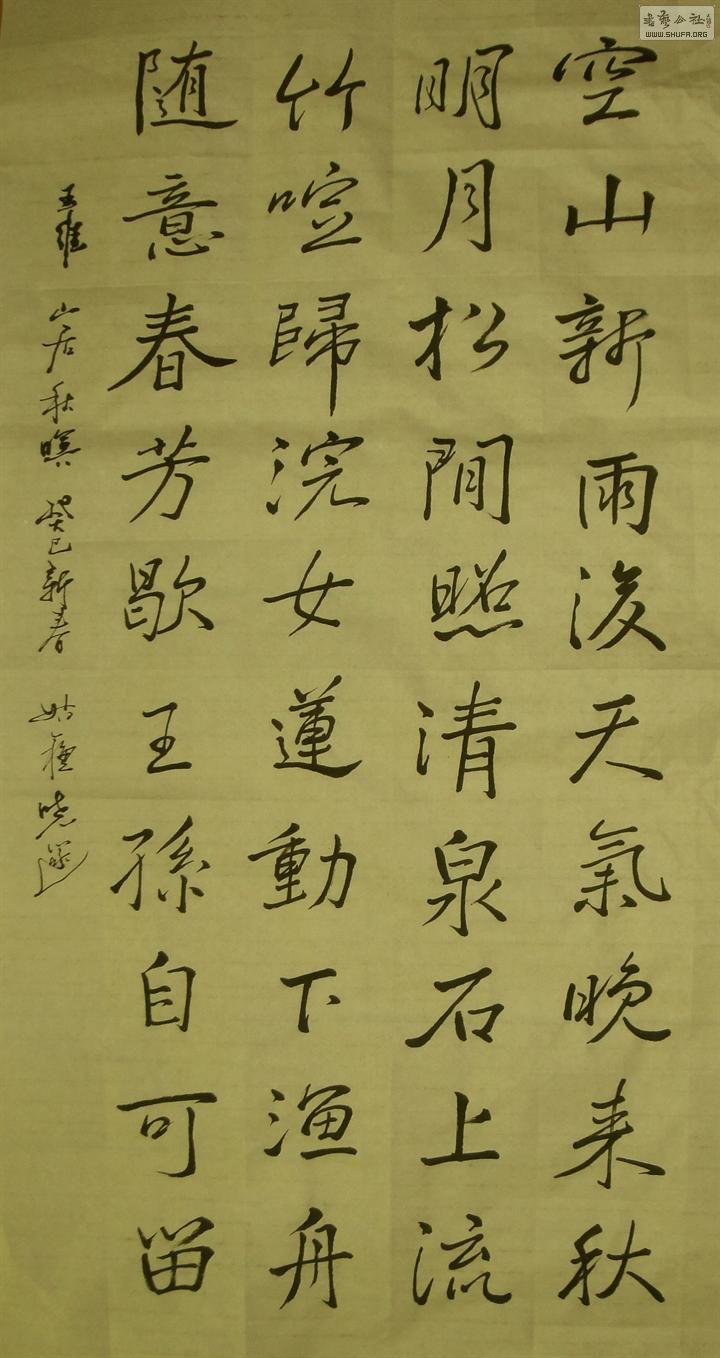 空山新雨後天氣晚来秋
明月松間照清泉石上流
竹喧歸浣女蓮動下渔舟
随意春芳歇王孫自可留
王維 山居秋暝 癸巳新春 姑蘇
書藝公社
WWW.SHUFA.ORG